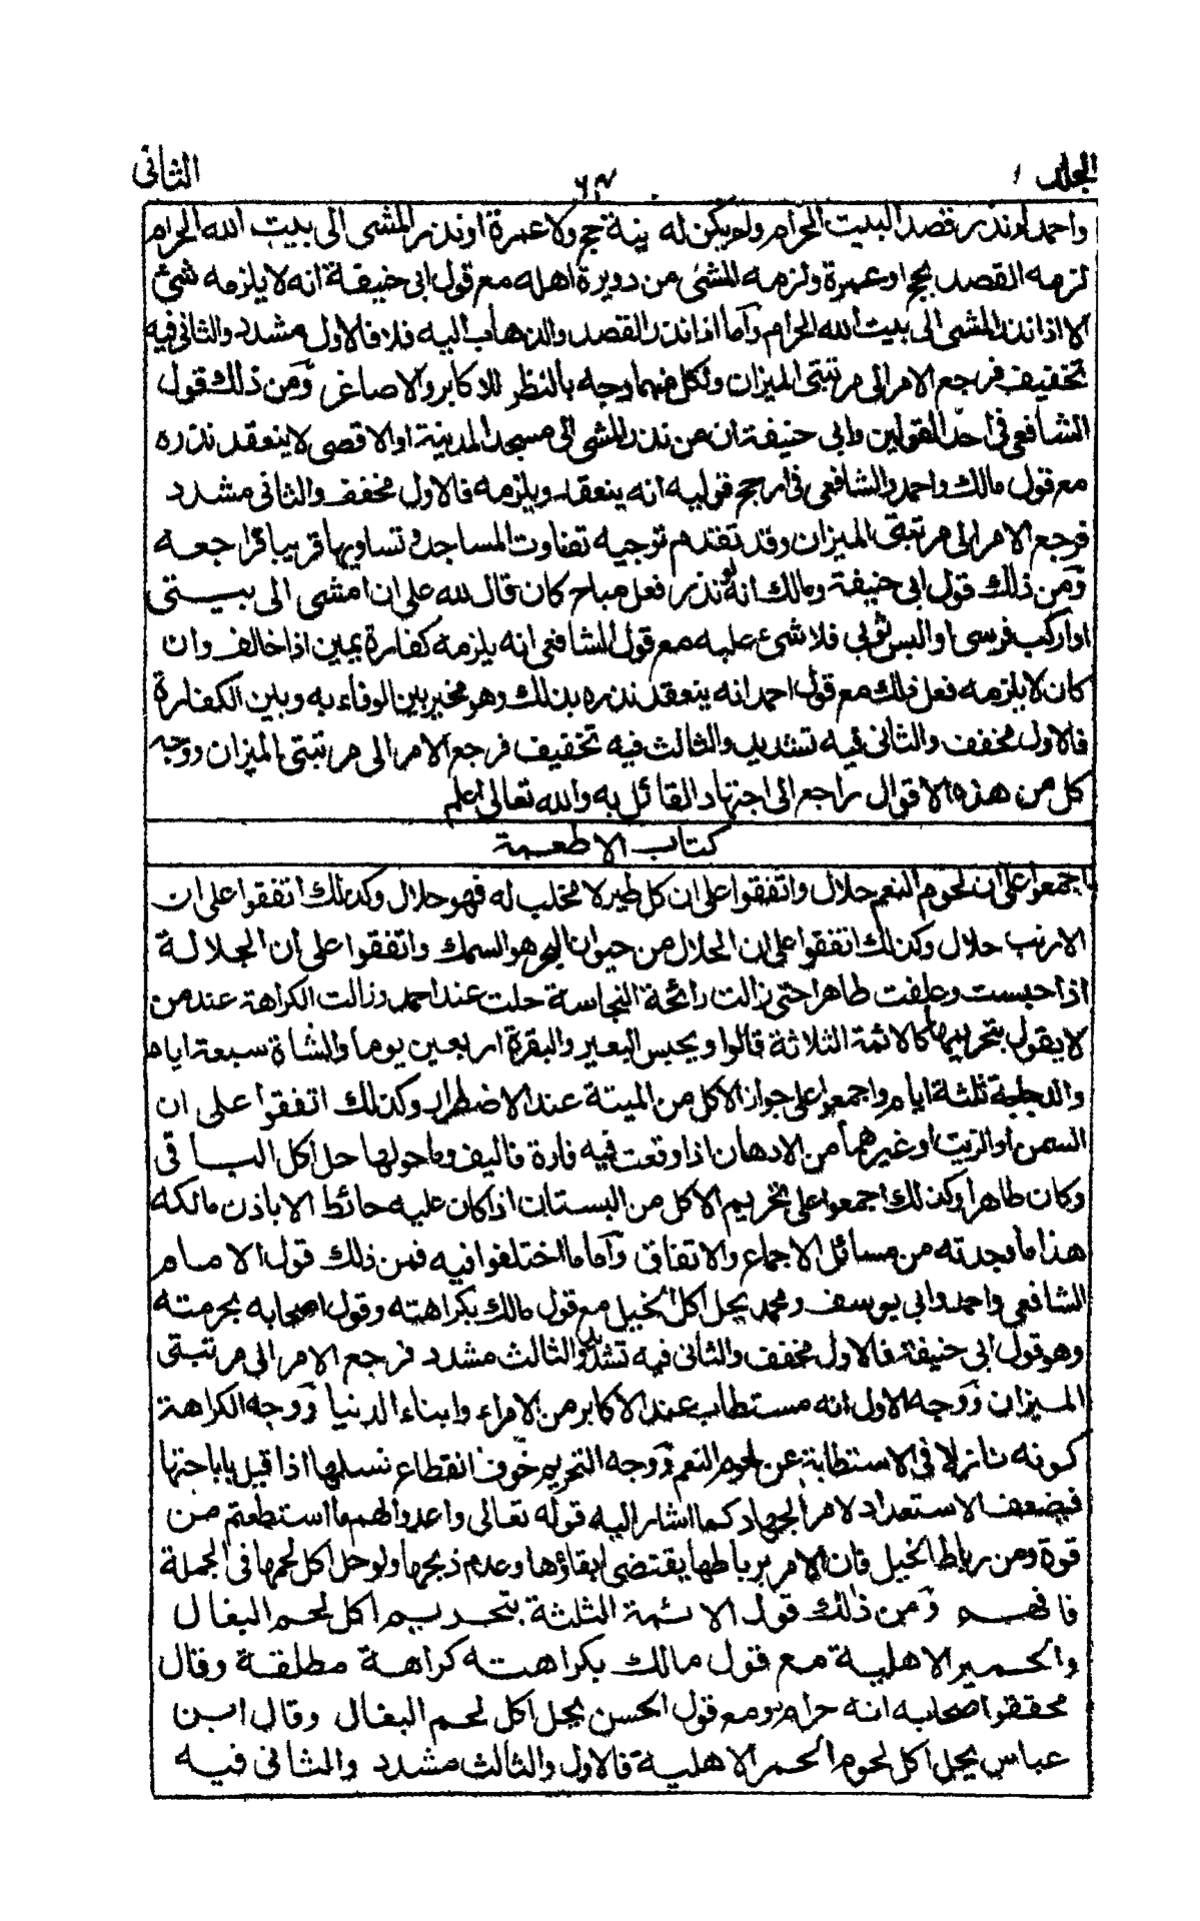 الجلد
٦٣
الثانى
واحمد لو نذر قصد البيت الحرام ولم يكن له نية حج ولا عمرة او نذر المشى الى بيت الله الحرام
لزمه القصد بحج او عمرة ولزمه المشى من دويرة اهله مع قول ابى حنيفة انه لا يلزمه شئ
الا اذا نذر المشى الى بيت الله الحرام وأما اذا نذر القصد والذهاب اليه فلا فالاول مشدد والثانى فيه
تخفيف فرجع الامر الى مرتبتى الميزان ولكل منهما وجه بالنظر للاكابر والاصاغر ومن ذلك قول
الشافعى فى احد القولين وابى حنيفة ان من نذر المشى الى مسجد المدينة او الاقصى لا ينعقد نذره
مع قول مالك واحمد والشافعى فى ارجح قوليه انه ينعقد ويلزمه فالاول مخفف والثانى مشدد
فرجع الامر الى مرتبتى الميزان وقد تقدم توجيه تفاوت المساجد وتساويها قريبا فراجعه
ومن ذلك قول ابى حنيفة ومالك انه لو نذر فعل مباح كان قال لله على ان امشى الى بيتى
او اركب فرسى او البس ثوبى فلا شئ عليه مع قول الشافعى انه يلزمه كفارة يمين اذا خالف وان
كان لا يلزمه فعل ذلك مع قول احمد انه ينعقد نذره بذلك وهو مخير بين الوفاء به وبين الكفارة
فالاول مخفف والثانى فيه تشديد والثالث فيه تخفيف فرجع الامر الى مرتبتى الميزان ووجه
كل من هذه الاقوال راجع الى اجتهاد القائل به والله تعالى اعلم
كتاب الاطعمة
اجمعوا على ان لحوم النعم حلال واتفقوا على ان كل طير لا مخلب له فهو حلال وكذلك اتفقوا على ان
الارنب حلال وكذلك اتفقوا على ان الحلال من حيوان البحر هو السمك واتفقوا على ان الجلالة
اذا حبست وعلفت طاهرا حتى زالت رائحة النجاسة حلت عند احمد وزالت الكراهة عند من
لا يقول بتحريمها كالائمة الثلاثة قالوا ويحبس البعير والبقرة اربعين يوما والشاة سبعة ايام
والدجاجة ثلثة ايام واجمعوا على جواز الاكل من الميتة عند الاضطرار وكذلك اتفقوا على ان
السمن او الزيت او غيرهما من الادهان اذا وقعت فيه فارة فاليف وما حولها حل اكل الباقى
وكان طاهرا وكذلك اجمعوا على تحريم الاكل من البستان اذا كان عليه حائط الا باذن مالكه
هذا ما وجدته من مسائل الاجماع والاتفاق وأما ما اختلفوا فيه فمن ذلك قول الامام
الشافعى واحمد وابى يوسف ومحمد بحل اكل الخيل مع قول مالك بكراهته وقول اصحابه بحرمته
وهو قول ابى حنيفة فالاول مخفف والثانى فيه تشديد والثالث مشدد فرجع الامر الى مرتبتى
الميزان ووجه الاول انه مستطاب عند الاكابر من الامراء وابناء الدنيا ووجه الكراهة
كونه نازلا فى الاستطابة عن لحوم النعم ووجه التحريم خوف انقطاع نسلها اذا قيل باباحتها
فيضعف الاستعداد لامر الجهاد كما اشار اليه قوله تعالى واعدوا لهم ما استطعتم من
قوة ومن رباط الخيل فان الامر برباطها يقتضى ابقاؤها وعدم ذبحها ولو حل اكل لحمها فى الجملة
فافهم ومن ذلك قول الائمة الثلثة بتحريم اكل لحم البغال
والحمير الاهلية مع قول مالك بكراهته كراهة مطلقة وقال
محققوا صحابه انه حرام ومع قول الحسن بحل اكل لحم البغال وقال ابن
عباس بحل اكل لحوم الحمر الاهلية فالاول والثالث مشدد والثانى فيه